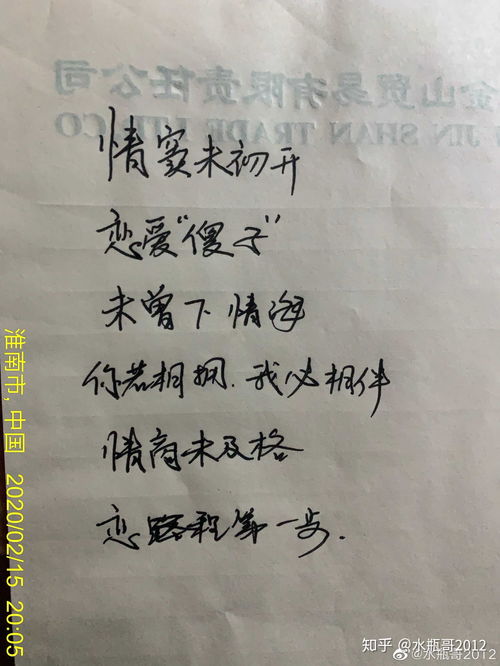 金山贸易有限责任公司
JIN SHAN TRADE LTD CO
情窦未初开
恋爱“傻子”
未曾下情海
你若相拥.我必相伴
情商未及格
恋路程第一步.
淮南市, 中国 2020/02/15 20:05
知乎 @水瓶哥2012
@水瓶哥2012